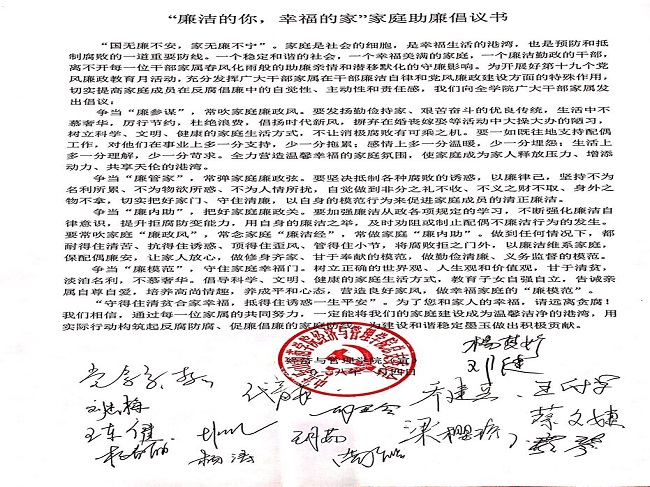 “廉洁的你，幸福的家”家庭助廉倡议书
“国无廉不安，家无廉不宁”。家庭是社会的细胞，是幸福生活的港湾，也是预防和抵
制腐败的一道重要防线。一个稳定和谐的社会，一个幸福美满的家庭，一个廉洁勤政的干部，
离不开每一位干部家属春风化雨般的助廉亲情和潜移默化的守廉影响。为开展好第十九个党
风廉政教育月活动，充分发挥广大干部家属在干部廉洁自律和党风廉政建设方面的特殊作用，
切实提高家庭成员在反腐倡廉中的自觉性、主动性和责任感，我们向全学院广大干部家属发
出倡议：
争当“廉参谋”，常吹家庭廉政风。要发扬勤俭持家、艰苦奋斗的优良传统，生活中不
慕奢华，厉行节约，杜绝浪费，倡扬时代新风，摒弃在婚丧嫁娶等活动中大操大办的陋习，
树立科学、文明、健康的家庭生活方式，不让消极腐败有可乘之机。要一如既往地支持配偶
工作，对他们在事业上多一分支持，少一分拖累；感情上多一分温暖，少一分埋怨；生活上
多一分理解，少一分苛求。全力营造温馨幸福的家庭氛围，使家庭成为家人释放压力、增添
动力、共享天伦的港湾。
争当“廉管家”，常弹家庭廉政弦。要坚决抵制各种腐败的诱惑，以廉律己，坚持不为
名利所累、不为物欲所惑、不为人情所扰，自觉做到非分之礼不收、不义之财不取、身外之
物不拿，切实把好家门、守住清廉，以自身的模范行为来促进家庭成员的清正廉洁。
争当“廉内助”，把好家庭廉政关。要加强廉洁从政各项规定的学习，不断强化廉洁自
律意识，提升拒腐防变能力，用自身的廉洁之举，及时劝阻或制止配偶不廉洁行为的发生。
要常吹家庭“廉政风”，常念家庭“廉洁经”，常做家庭“廉内助”。做到任何情况下，都
耐得住清苦、抗得住诱惑、顶得住歪风、管得住小节，将腐败拒之门外，以廉洁维系家庭，
保配偶廉安，让家人放心，做修身齐家、甘于奉献的模范，做勤俭清廉、义务监督的模范。
争当“廉模范”，守住家庭幸福门。树立正确的世界观、人生观和价值观，甘于清贫，
淡泊名利，不慕奢华。倡导科学、文明、健康的家庭生活方式，教育子女自强自立，告诫亲
属自尊自爱，培养高尚情趣，养成平和心态，营造良好家风，做幸福家庭的“廉模范”。
“守得住清贫合家幸福，抵得住诱惑一生平安”。为了您和家人的幸福，请远离贪腐！
我们相信，通过每一位家属的共同努力，一定能将我们的家庭建设成为温馨洁净的港湾，用
实际行动构筑起反腐防腐、促廉倡廉的家庭防线，为建设和谐稳定墨玉做出积极贡献。
与管理学院